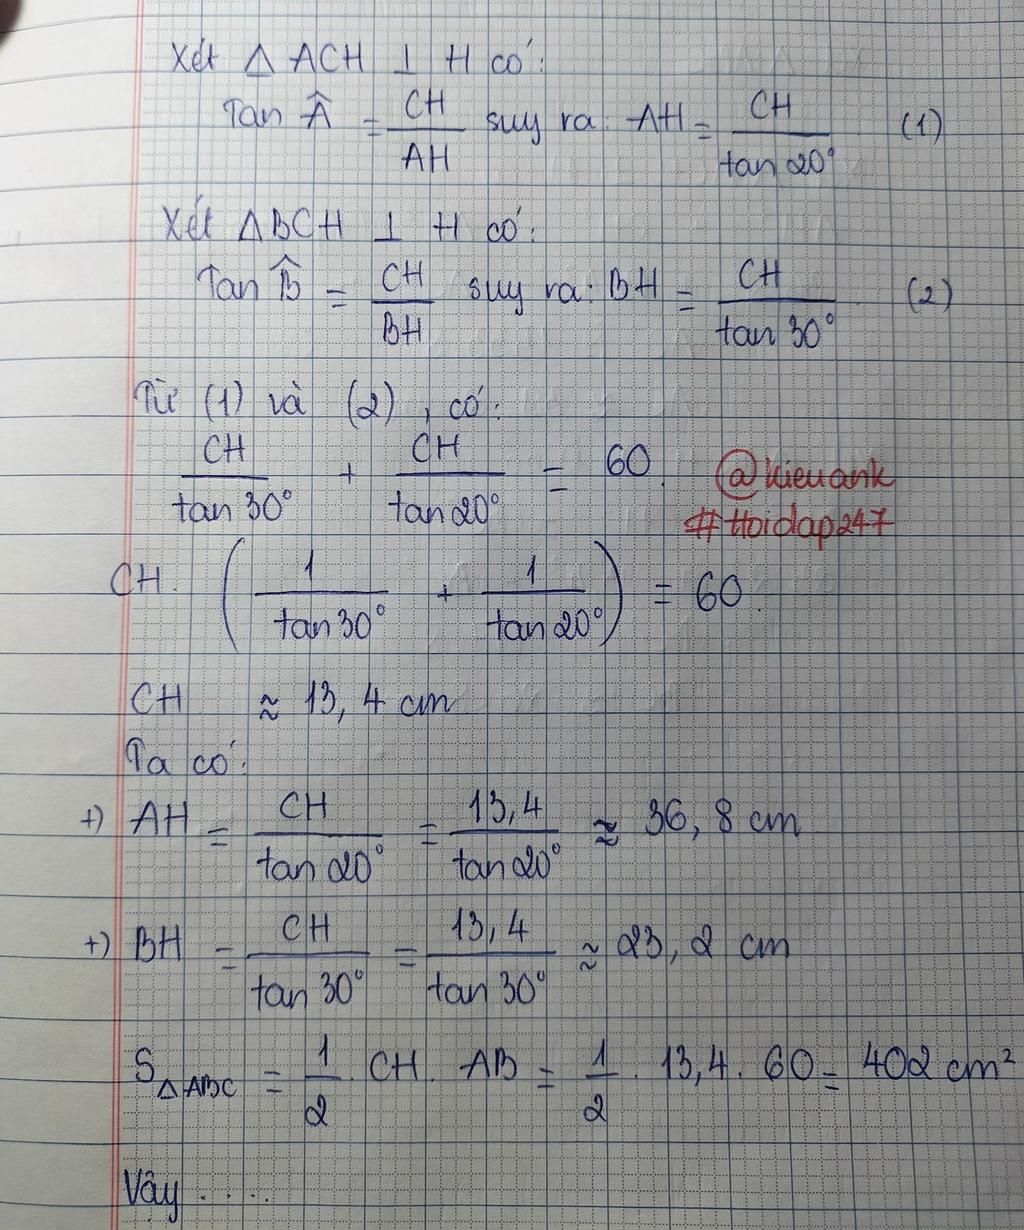 Xét Δ ACH ⊥ H có:
Tan Â = CH/AH suy ra: AH = CH/tan 20° (1)
Xét ΔBCH ⊥ H có:
Tan B̂ = CH/BH suy ra: BH = CH/tan 30° (2)
Từ (1) và (2), có:
CH/tan 30° + CH/tan 20° = 60
@kieuank
#Hoidap247
CH. (1/tan 30° + 1/tan 20°) = 60.
CH ≈ 13,4 cm
Ta có:
+) AH = CH/tan 20° = 13,4/tan 20° ≈ 36,8 cm
+) BH = CH/tan 30° = 13,4/tan 30° ≈ 23,2 cm
S ΔABC = 1/2 . CH. AB = 1/2 . 13,4. 60 = 402 cm²
Vậy .....